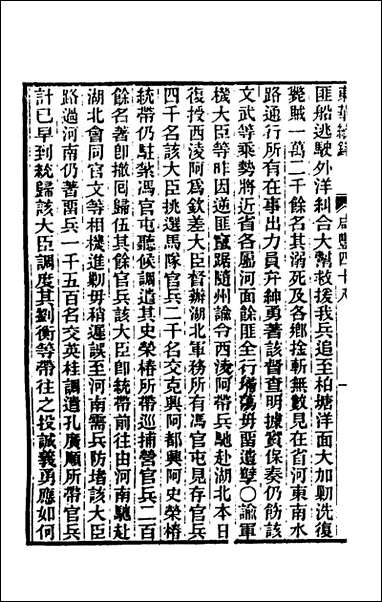 東華續錄　咸豐四十八　一
匪船逃駛外洋糾合大幫救援我兵追至柏塘洋面大加剿洗復
斃賊一萬二千餘名其溺死及各鄉捡斬無數見在省河東南水
路通行所有在事出力員弁紳勇著該督查明據實保奏仍飭該
文武等乘勢將近省各屬河面餘匪全行掃蕩毋畱遺孽〇諭軍
機大臣等昨因逆匪竄踞隨州諭令西淩阿帶兵馳赴湖北本日
復授西淩阿為欽差大臣督辦湖北軍務所有馮官屯見存官兵
四千名該大臣挑選馬隊官兵二千名交克興阿都興阿史榮椿
統帶仍駐紮馮官屯聽候調遣其史榮椿所帶巡捕營官兵二百
餘名著卽撤囘歸伍其餘官兵該大臣卽統帶前往由河南馳赴
湖北會同官文等相機進剿毋稍遲誤至河南需兵防堵該大臣
路過河南仍著畱兵一千五百名交英桂調遣孔廣順所帶官兵
計已早到統歸該大臣調度其劉衡等帶往之投誠義勇應如何